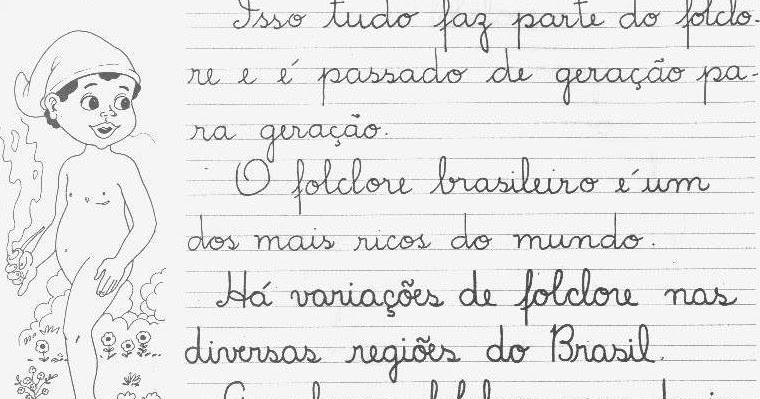 Isso tudo faz parte do folclo-
re e é passado de geração pa-
ra geração.
O folclore brasileiro é um
dos mais ricos do mundo.
Há variações de folclore nas
diversas regiões do Brasil.